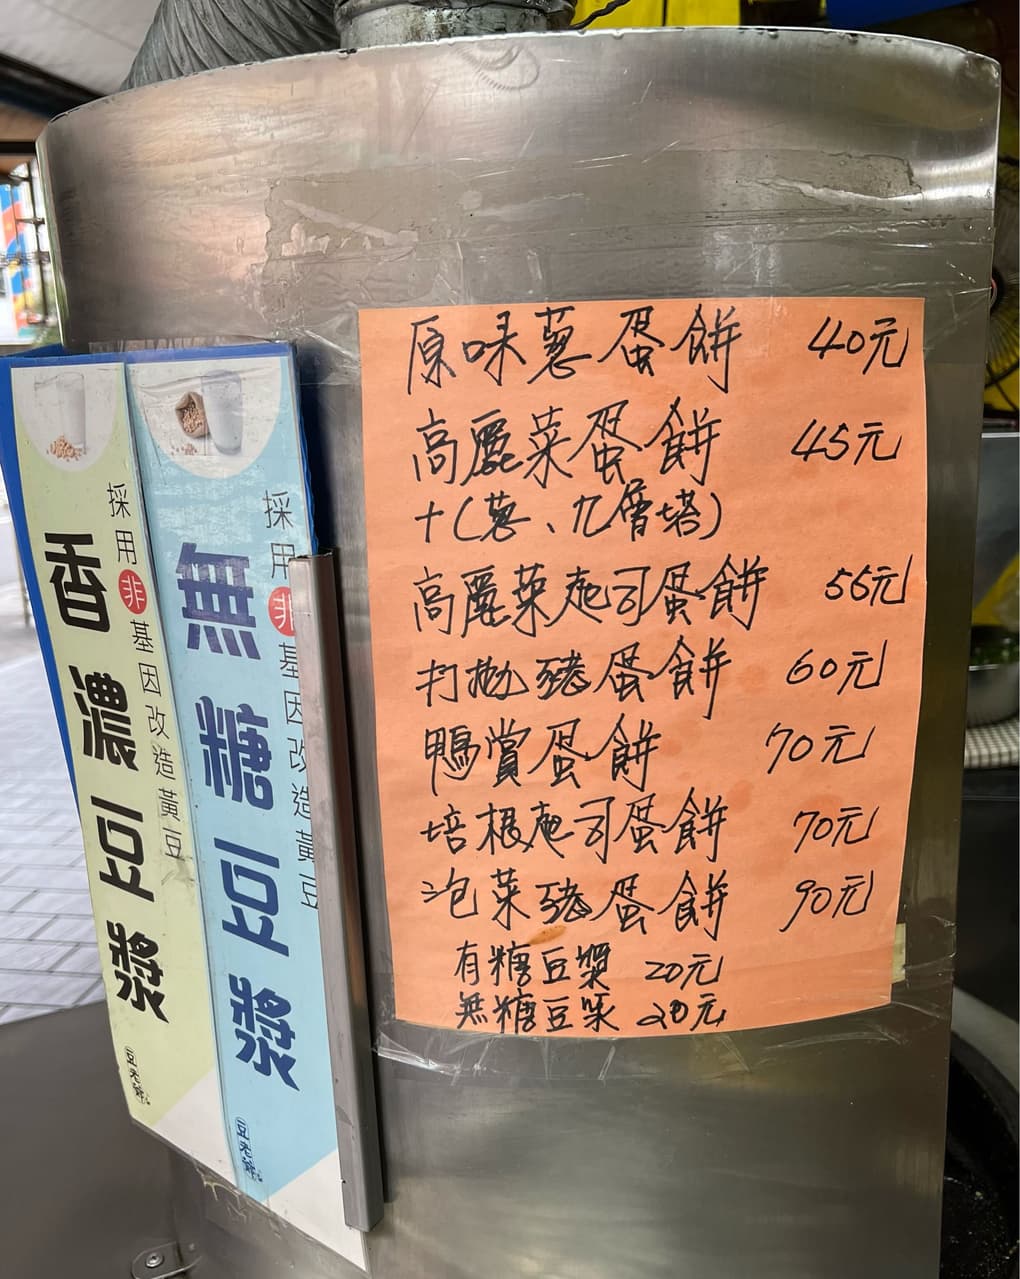 原味蔥蛋餅 40元
高麗菜蛋餅 45元
+(蔥、九層塔)
高麗菜起司蛋餅 55元
打拋豬蛋餅 60元
鴨賞蛋餅 70元
培根起司蛋餅 70元
泡菜豬蛋餅 90元
有糖豆漿 20元
無糖豆浆 20元
採用非基因改造黃豆
香濃豆漿
採用非基因改造黃豆
無糖豆漿